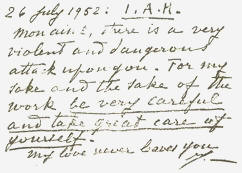 26 July 1952: I.A.R.
Mon ainé, there is a very
violent and dangerous
attack upon you. For my
sake and the sake of the
work be very careful
and take great care of
yourself.
My love never leaves you